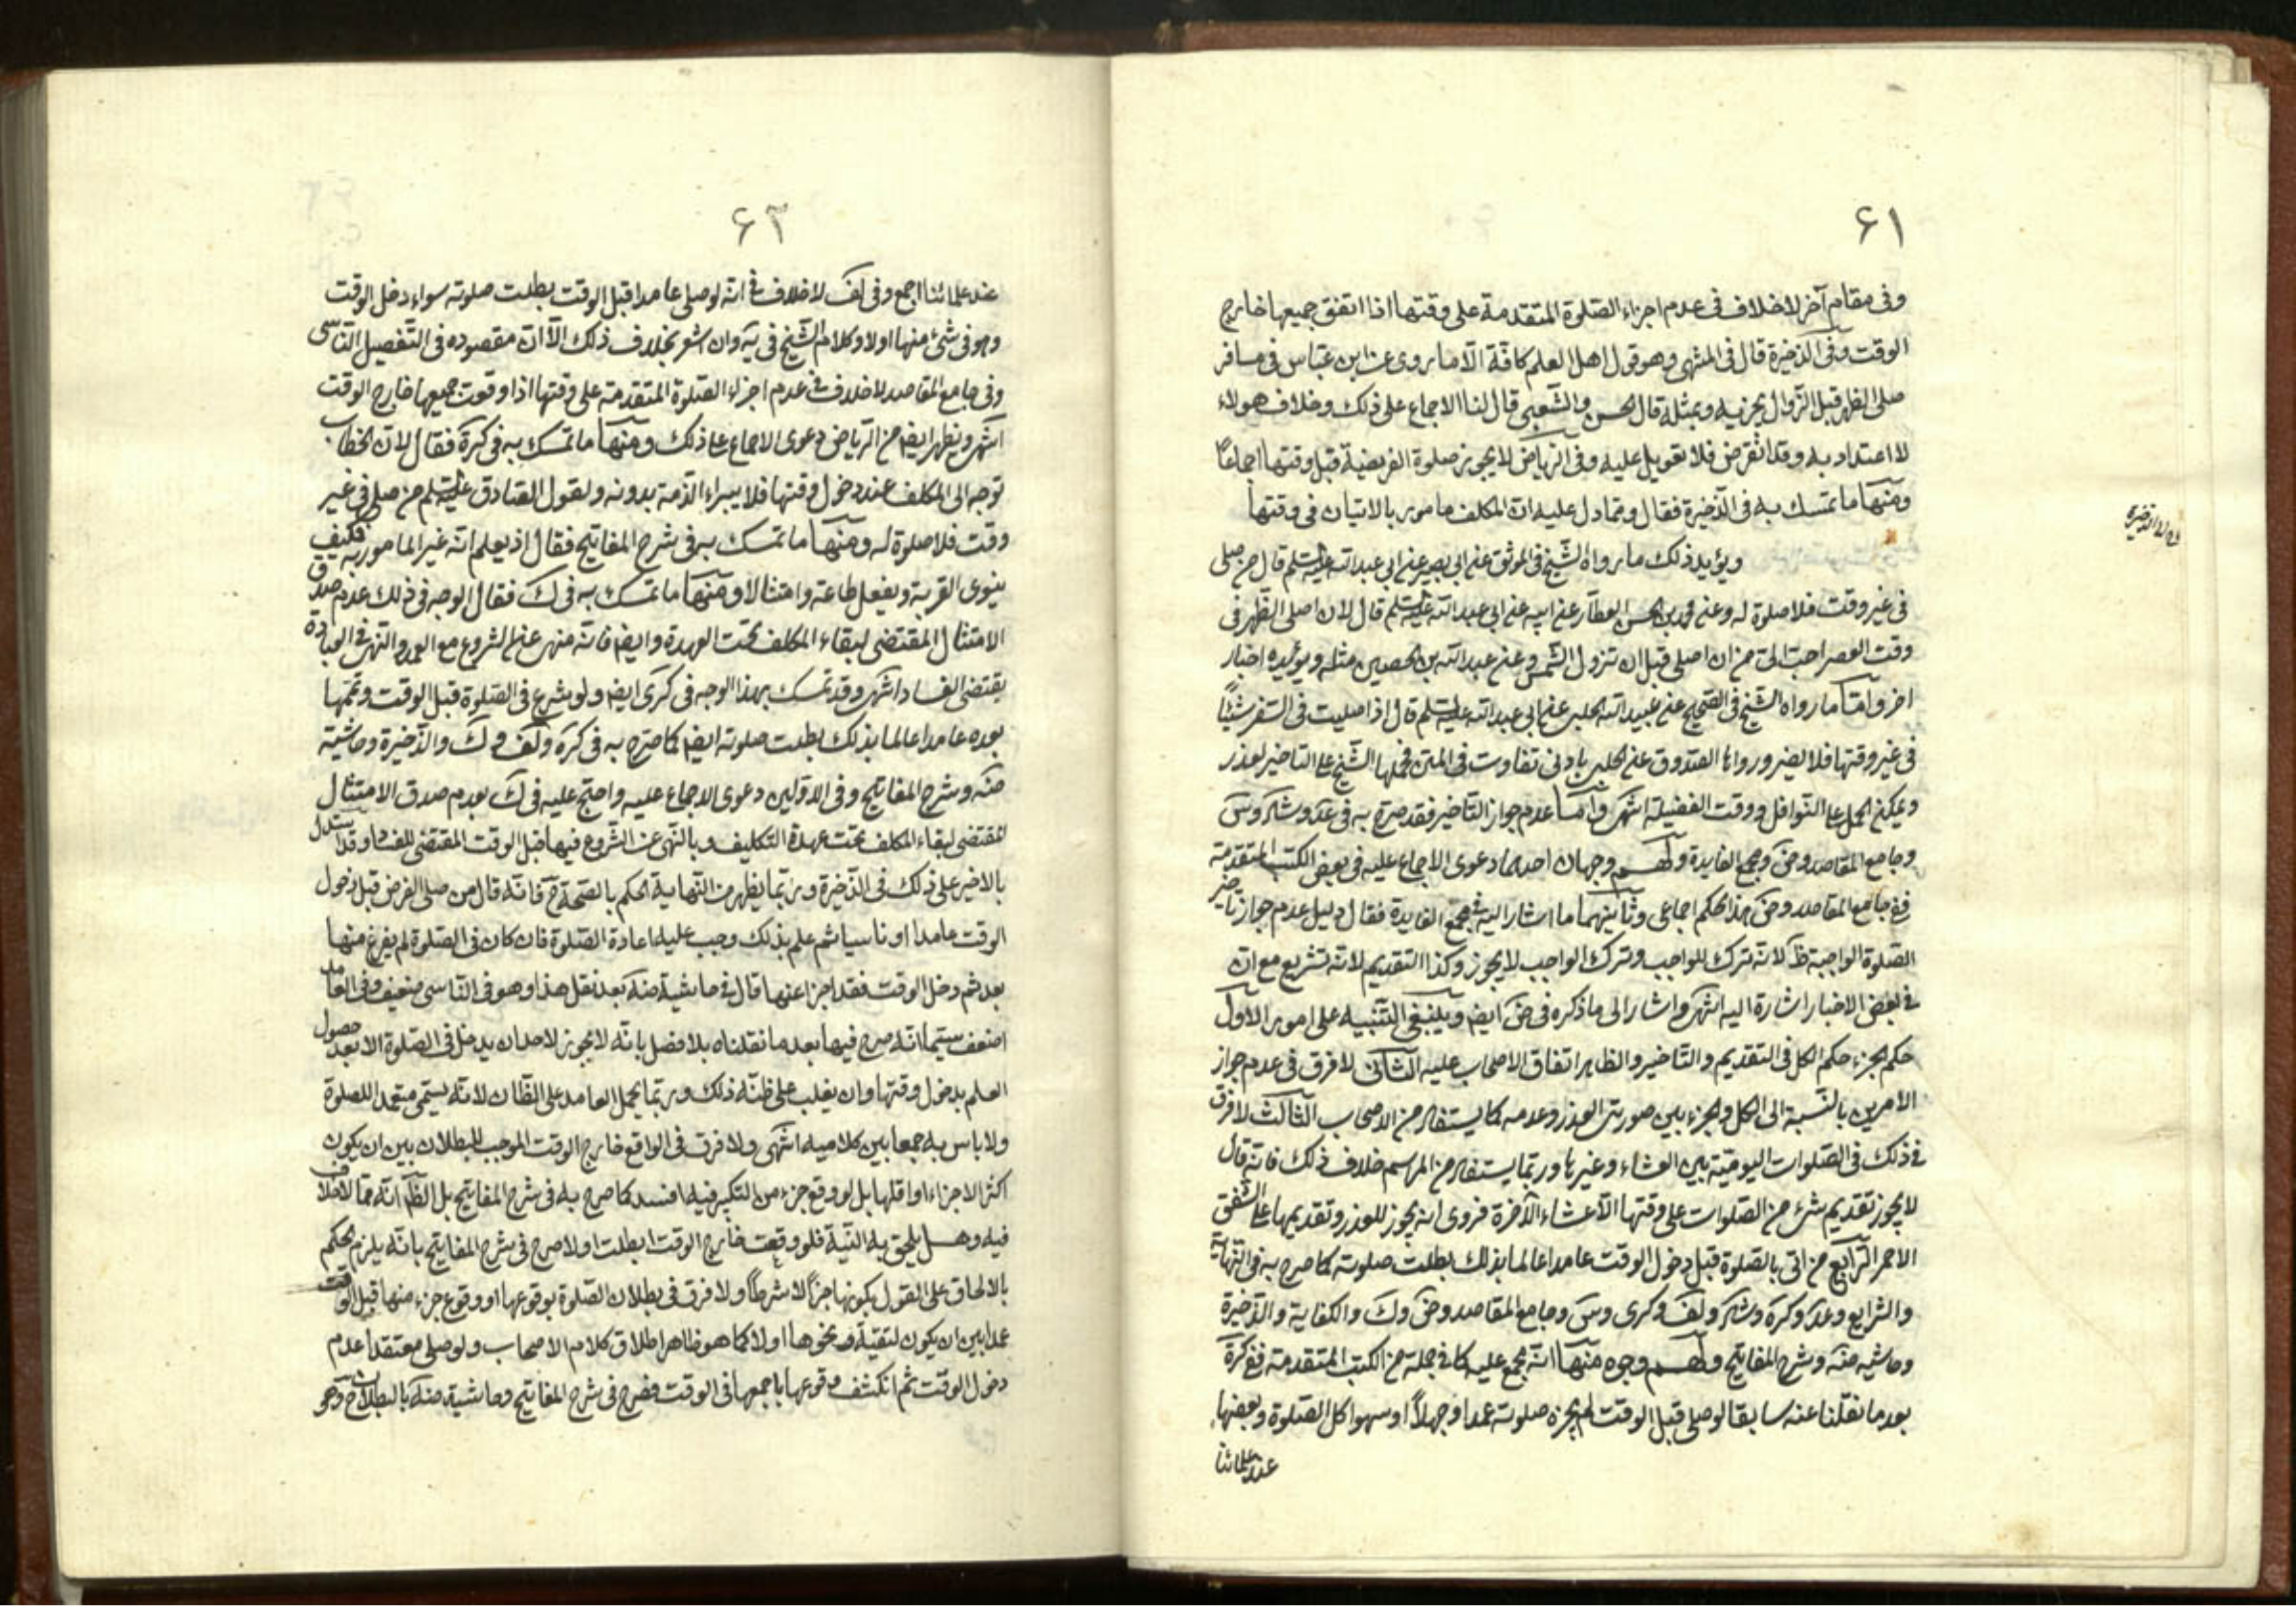 ۶۱
وفی مقام آخر لا خلاف فی عدم اجزاء الصّلوة المتقدمة علی وقتها اذا اتفق جمیعها خارج
الوقت وفی الذخیرة قال فی المنتهی وهو قول اهل العلم کافّة الّا ما روی عن ابن عبّاس فی مسافر
صلی الظهر قبل الزّوال یجزیه وبمثله قال الحسن والشعبی قال لنا الاجماع علی ذلک وخلاف هولاء
لا اعتداد به وقد انقرض فلا تعویل علیه وفی الریاض لا یجوز صلوة الفریضة قبل وقتها اجماعاً
ومنها ما تمسک به فی الذّخیرة فقال وممّا دل علیه انّ المکلف مامور بالاتیان فی وقتها
ویؤید ذلک ما رواه الشّیخ فی الموثق عن ابی بصیر عن ابی عبد اللّه علیه السّلم قال من صلی
فی غیر وقت فلا صلوة له وعن محمد بن الحسن العطار عن ابیه عن ابی عبد اللّه علیه السّلم قال لان اصلی الظّهر فی
وقت العصر احبّ الیّ من ان اصلی قبل ان تزول الشّمس وعن عبد اللّه بن الحصین مثله ویؤیّده اخبار
اخر وامّا ما رواه الشّیخ فی الصّحیح عن عبید اللّه الحلبی عن ابی عبد اللّه علیه السّلم قال اذا صلیت فی السّفر شیئاً
فی غیر وقتها فلا یضر ورواها الصّدوق عن الحلبی بادنی تفاوت فی المتن فحملها الشّیخ علی التاخیر لعذر
ویمکن الحمل علی النّوافل ووقت الفضیلة انتهی وامّا عدم جواز التّاخیر فقد صرح به فی عد وشاد وس
وجامع المقاصد وض ومجمع الفایدة ولهم وجهان احدهما دعوی الاجماع علیه فی بعض الکتب المتقدّمة
ففی جامع المقاصد وض هذا الحکم اجماعی وثانیهما ما اشار الیه فی مجمع الفایدة فقال دلیل عدم جواز تاخیر
الصّلوة الواجبة ظ لانّه ترک للواجب وترک الواجب لا یجوز وکذا التقدیم لانّه تشریع مع انّ
فی بعض الاخبار اشارة الیه انتهی واشار الی ما ذکره فی ض ایضا وینبغی التّنبیه علی امور الاوّل
حکم الجزء حکم الکل فی التقدیم والتّاخیر والظاهر اتفاق الاصحاب علیه الثّانی لا فرق فی عدم جواز
الامرین بالنّسبة الی الکل والجزء بین صورتی العذر وعدمه کما یستفاد من الاصحاب الثّالث لا فرق
فی ذلک فی الصّلوات الیومیّة بین العشاء وغیرها وربّما یستفاد من المراسم خلاف ذلک فانّه قال
لا یجوز تقدیم شیء من الصّلوات علی وقتها الّا عشاء الآخرة فروی انّه یجوز للعذر وتقدیمها علی الشّفق
الاحمر الرّابع من اتی بالصّلوة قبل دخول الوقت عامدا عالما بذلک بطلت صلوته کما صرح به فی النّهایة
والشرایع وعد وکرة وشاد ولف وکری وس وجامع المقاصد وض وک والکفایة والذّخیرة
وحاشیه منه وشرح المفاتیح ولهم وجوه منها انّه مجمع علیه کما فی جملة من الکتب المتقدمة ففی کرة
بعد ما نقلنا عنه سابقا لو صلی قبل الوقت لم یجزه صلوته عمدا وجهلاً او سهوا کل الصّلوة وبعضها
عند علمائنا
۶۲
عند علمائنا اجمع وفی لف لا خلاف فی انّه لو صلی عامدا قبل الوقت بطلت صلوته سواء دخل الوقت
وهو فی شیء منها اولا وکلام الشّیخ فی یه وان اشعر بخلاف ذلک الّا انّ مقصوده فی التّفصیل النّاسی
وفی جامع المقاصد لا خلاف فی عدم اجزاء الصّلوة المتقدمة علی وقتها اذا وقعت جمیعها خارج الوقت
انتهی ویظهر ایضا من الرّیاض دعوی الاجماع علی ذلک ومنها ما تمسک به فی کرة فقال لانّ الخطاب
توجه الی المکلف عند دخول وقتها فلا یبراء الذّمة بدونه ولقول الصّادق علیه السّلم من صلی فی غیر
وقت فلا صلوة له ومنها ما تمسک به فی شرح المفاتیح فقال اذ یعلم انّه غیر المامور به فکیف
ینوی القربة ویفعل طاعة وامتثالا ومنها ما تمسک به فی ک فقال الوجه فی ذلک عدم صدق
الامتثال المقتضی لبقاء المکلف تحت العهدة وایضا فانّه منهی عن الشروع مع العمد والنّهی فی العبادة
یقتضی الفساد انتهی وقد تمسک بهذا الوجه فی کری ایضا ولو شرع فی الصّلوة قبل الوقت وتمّمها
بعده عامدا عالما بذلک بطلت صلوته ایضا کما صرح به فی کرة ولف وک والذّخیرة وحاشیة
منه وشرح المفاتیح وفی الاوّلین دعوی الاجماع علیه واحتج علیه فی ک بعدم صدق الامتثال
المقتضی لبقاء المکلف تحت عهدة التکلیف وبالنّهی عن الشّروع فیها قبل الوقت المقتضی للفساد وقد استدل
بالاخیر علی ذلک فی الذّخیرة وربّما یظهر من النّهایة الحکم بالصّحة ح فانّه قال من صلی الفرض قبل دخول
الوقت عامدا او ناسیا ثم علم بذلک وجب علیه اعادة الصّلوة فان کان فی الصّلوة لم یفرغ منها
بعد ثم دخل الوقت فقد اجزا عنها قال فی حاشیة منه بعد نقل هذا وهو فی النّاسی ضعیف وفی العامد
اضعف سیّما انّه صرح فیها بعد ما نقلناه بلا فصل بانّه لا یجوز لاحد ان یدخل فی الصّلوة الا بعد حصول
العلم بدخول وقتها وان یغلب علی ظنّه ذلک وربّما یحمل العامد علی الظّان لانّه یسمّی متعمد اللصلوة
ولا باس به جمعا بین کلامیه انتهی ولا فرق فی الواقع خارج الوقت الموجب للبطلان بین ان یکون
اکثر الاجزاء او اقلها بل لو وقع جزء من التکبیر فیه افسد کما صرح به فی شرح المفاتیح بل الظّ انّه ممّا لا خلاف
فیه وهل یلحق به النّیة فلو وقعت خارج الوقت ابطلت اولا صرح فی شرح المفاتیح بانّه یلزم الحکم
بالالحاق علی القول بکونها جزأ لا شرطاً ولا فرق فی بطلان الصّلوة بوقوعها او وقوع جزء منها قبل الوقت
عمدا بین ان یکون لتقیّة ونحوها اولا کما هو ظاهر اطلاق کلام الاصحاب ولو صلی معتقدا عدم
دخول الوقت ثم انکشف وقوعها باجمعها فی الوقت فصرح فی شرح المفاتیح وحاشیة منه بالبطلان ح وهو